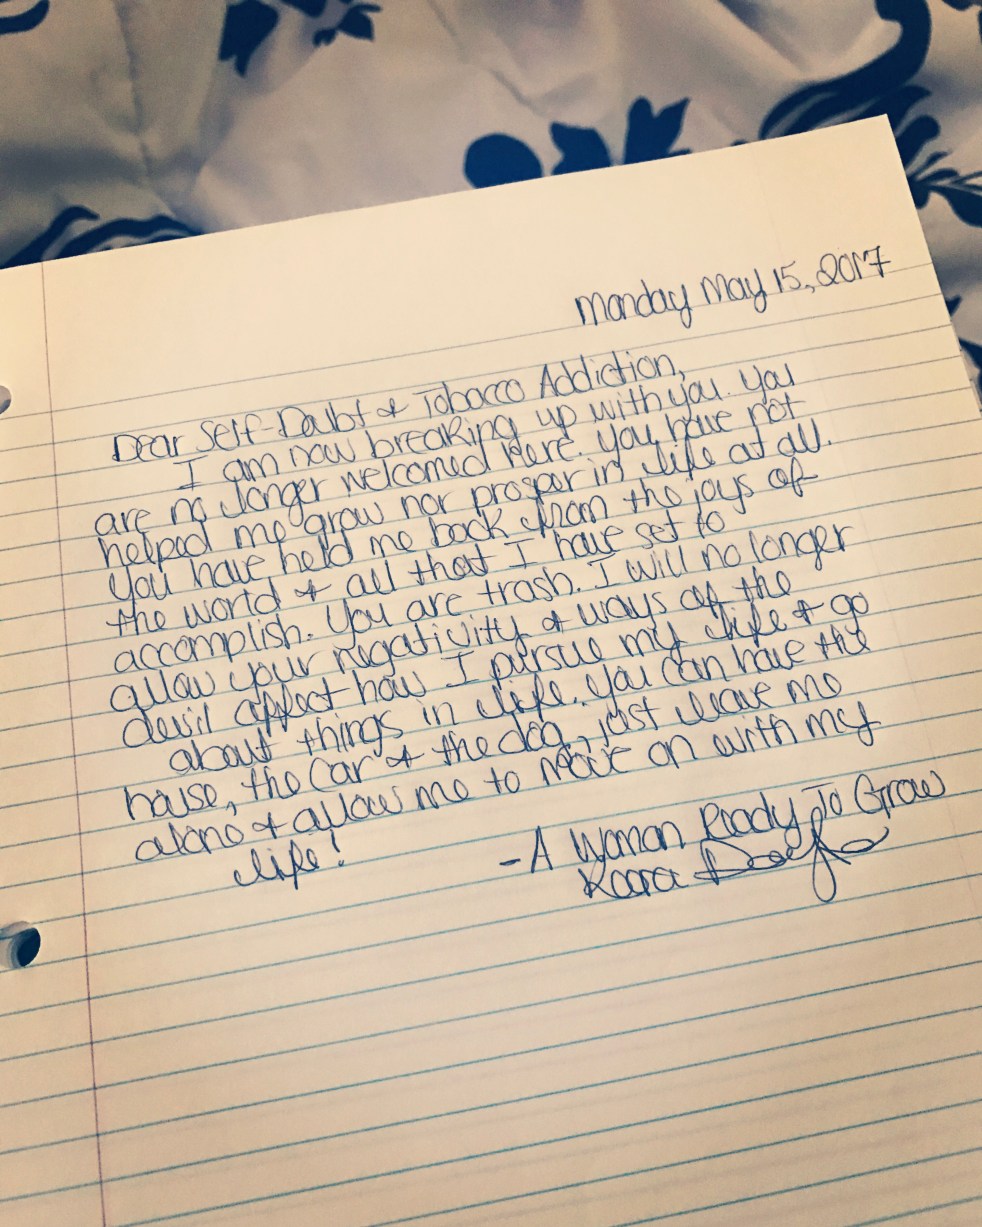 Monday May 15, 2017
Dear Self-Doubt & Tobacco Addiction,
I am now breaking up with you. You
are no longer welcomed here. You have not
helped me grow nor prosper in life at all.
You have held me back from the joys of
the world & all that I have set to
accomplish. You are trash. I will no longer
allow your negativity & ways of the
devil affect how I pursue my life & go
about things in life. You can have the
house, the car & the dog, just leave me
alone & allow me to move on with my
life!
-A Woman Ready To Grow
Kaara